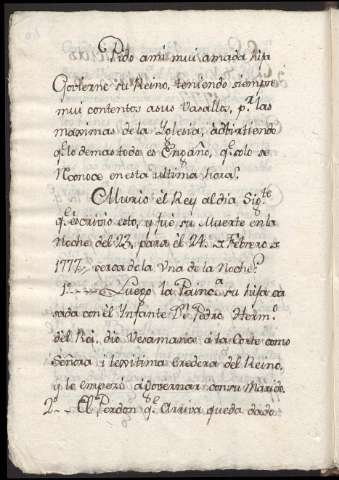 Pido a mi mui amada hija
Govierne su Reino, teniendo siempre
mui contentos a sus Vasallos, p.r las
maximas de la Yglesia, adbirtiendo
q.e lo demas todo es Engaño, q.e solo se
Reconoce en esta ultima hora.
Murio el Rey al dia Sig.te
q.e escrivio esto, y fue su Muerte en la
Noche del 23, para el 24 de Febrero de
1777, cerca de la Una de la Noche.
1.o Luego la Prins.a su hija ca
sada con el Infante D.n Pedro Herm.o
del Rei, dio Vesamanos â la Corte como
Señora i lexitima Eredera del Reino,
y le emperó â Governar con su Marido.
2.o El Perdon q.e Arriva queda dado